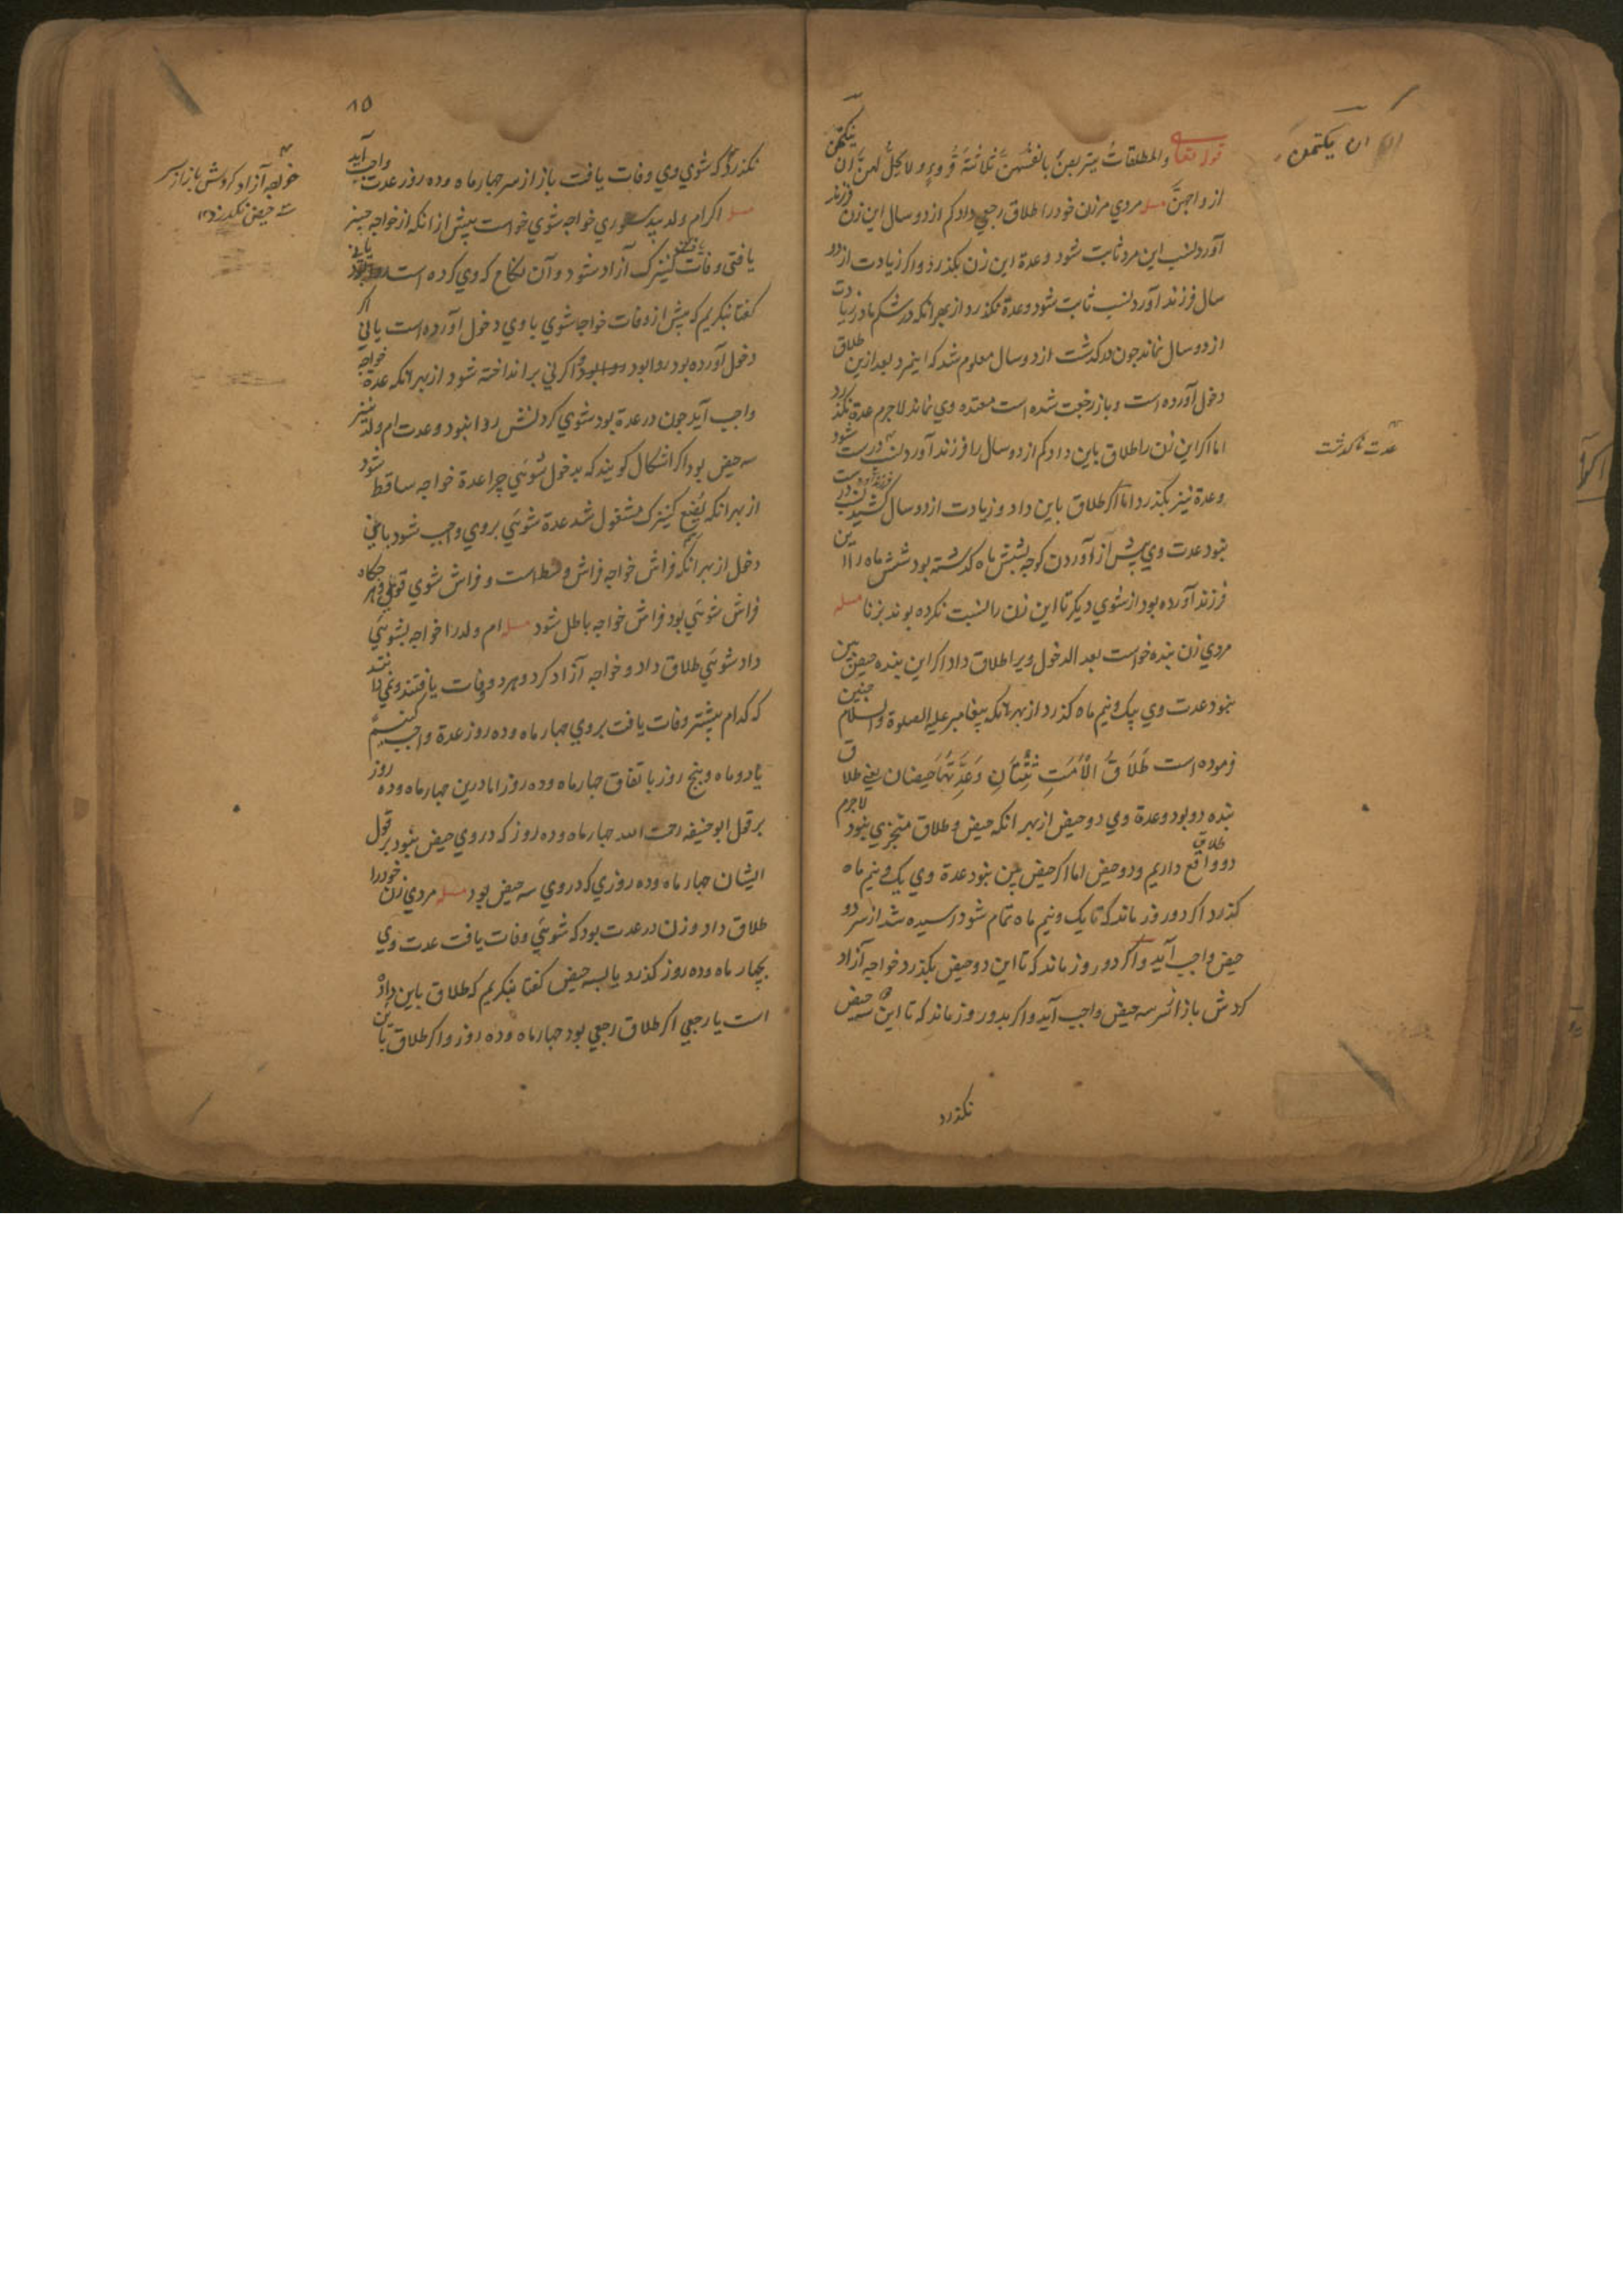 قوله تعالی والمطلقات یتربصن بانفسهن ثلاثة قروء ولا یحل لهن ان یکتمن
ازواجهن مسله مردي مرزن خود را طلاق رجعي داد کم از دو سال این زن فرزند
آورد نسب این مرد ثابت شود وعدة این زن بکذرد واکر زیادت از دو
سال فرزند آورد نسب ثابت شود وعدة نکذرد از بهر انکه در شکم مادر زیادت
از دو سال نماند جون کذشت از دو سال معلوم شد که اینمرد بعد ازین طلاق
دخول آورده است و باز رجعت شده است معتده وي نماند لاجرم عدة نکذرد
اما اکر این زن را طلاق باین داد کم از دو سال را فرزند آورد نسب درست شود
وعدة نیز بکذرد اما اکر طلاق باین داد و زیادت از دو سال کشید نسب درست
نبود عدت وي پیش از آوردن کوجه بشش ماه کذشته بود شش ماه را این
فرزند آورده بود از شوي دیکر تا این زن را نسبت نکرده بوند بزنا مسله
مردي زن بنده خواست بعد الدخول ویرا طلاق داد اکر این بنده حیض بین
نبود عدت وي بیک ونیم ماه کذرد از بهر انکه پیغامبر علیه الصلوة والسلام جنین
فرموده است طَلَاقُ الْاَمَتِ ثِنْتَانِ وَعِدَّتُهَا حَیضتان یعني طلاق
بنده دو بود وعدة وي دو حیض از بهر انکه حیض و طلاق متجزي نبود لاجرم
دو طلاق واقع داریم ودو حیض اما اکر حیض بین نبود عدة وي یک ونیم ماه
کذرد اکر دو روز ماند که تا یک ونیم ماه تمام شود رسیده شد از سر دو
حیض واجب آید واکر دو روز ماند که تا این دو حیض بکذرد خواجه آزاد
کردش باز از سر سه حیض واجب آید واکر بدو روز ماند که تا این سه حیض
نکذرد
ان یکتمن
عدت نکذشت
۸۵
نکذرد که شوي وي وفات یافت باز از سر جهار ماه وده روز عدت واجب آید
مسله اکر ام ولد بي دستوري خواجه شوي خواست پیش از انکه از خواجه خبر
یافتي وفات یافت کنیزک آزاد شود و آن نکاح که وي کرده است روا بود یا ني
کفتا بنکریم که پیش از وفات خواجه شوي با وي دخول آورده است یا ني اکر
دخول آورده بود روا بود واکر ني بر انداخته شود از بهر انکه عدة خواجه
واجب آید جون در عدة بود شوي کردنش روا نبود وعدت ام ولد نیز
سه حیض بود اکر اشکال کویند که بدخول شوئي چرا عدة خواجه ساقط شود
از بهر انکه بُضع کنیزک مشغول شد عدة شوئي بروي واجب شود باني
دخل از بهر انکه فراش خواجه فراش وسط است و فراش شوي قوي هرکاه
فراش شوئي بود فراش خواجه باطل شود مسله ام ولد را خواجه بشوئي
داد شوئي طلاق داد و خواجه آزاد کرد وهر دو وفات یافتند و نمي دانند
که کدام پیشتر وفات یافت بروي جهار ماه وده روز عدة واجب کنیم
یا دو ماه وپنج روز باتفاق جهار ماه وده روز اما درین جهار ماه وده روز
بر قول ابو حنیفه رحمت الله جهار ماه وده روز که در وي حیض نبود بر قول
ایشان جهار ماه وده روزي که در وي سه حیض بود مسله مردي زن خود را
طلاق داد و زن در عدت بود که شوئي وفات یافت عدت وي
بچهار ماه وده روز کذرد یا بسه حیض کفتا بنکریم که طلاق باین داده
است یا رجعي اکر طلاق رجعي بود جهار ماه وده روز واکر طلاق باین
خواجه آزاد کردش باز از سر
سه حیض نکذرد ۱۲